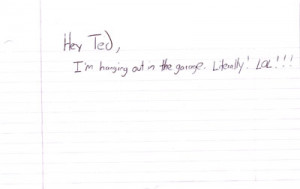 Hey Ted,
I'm hanging out in the garage. Literally! LOL!!!